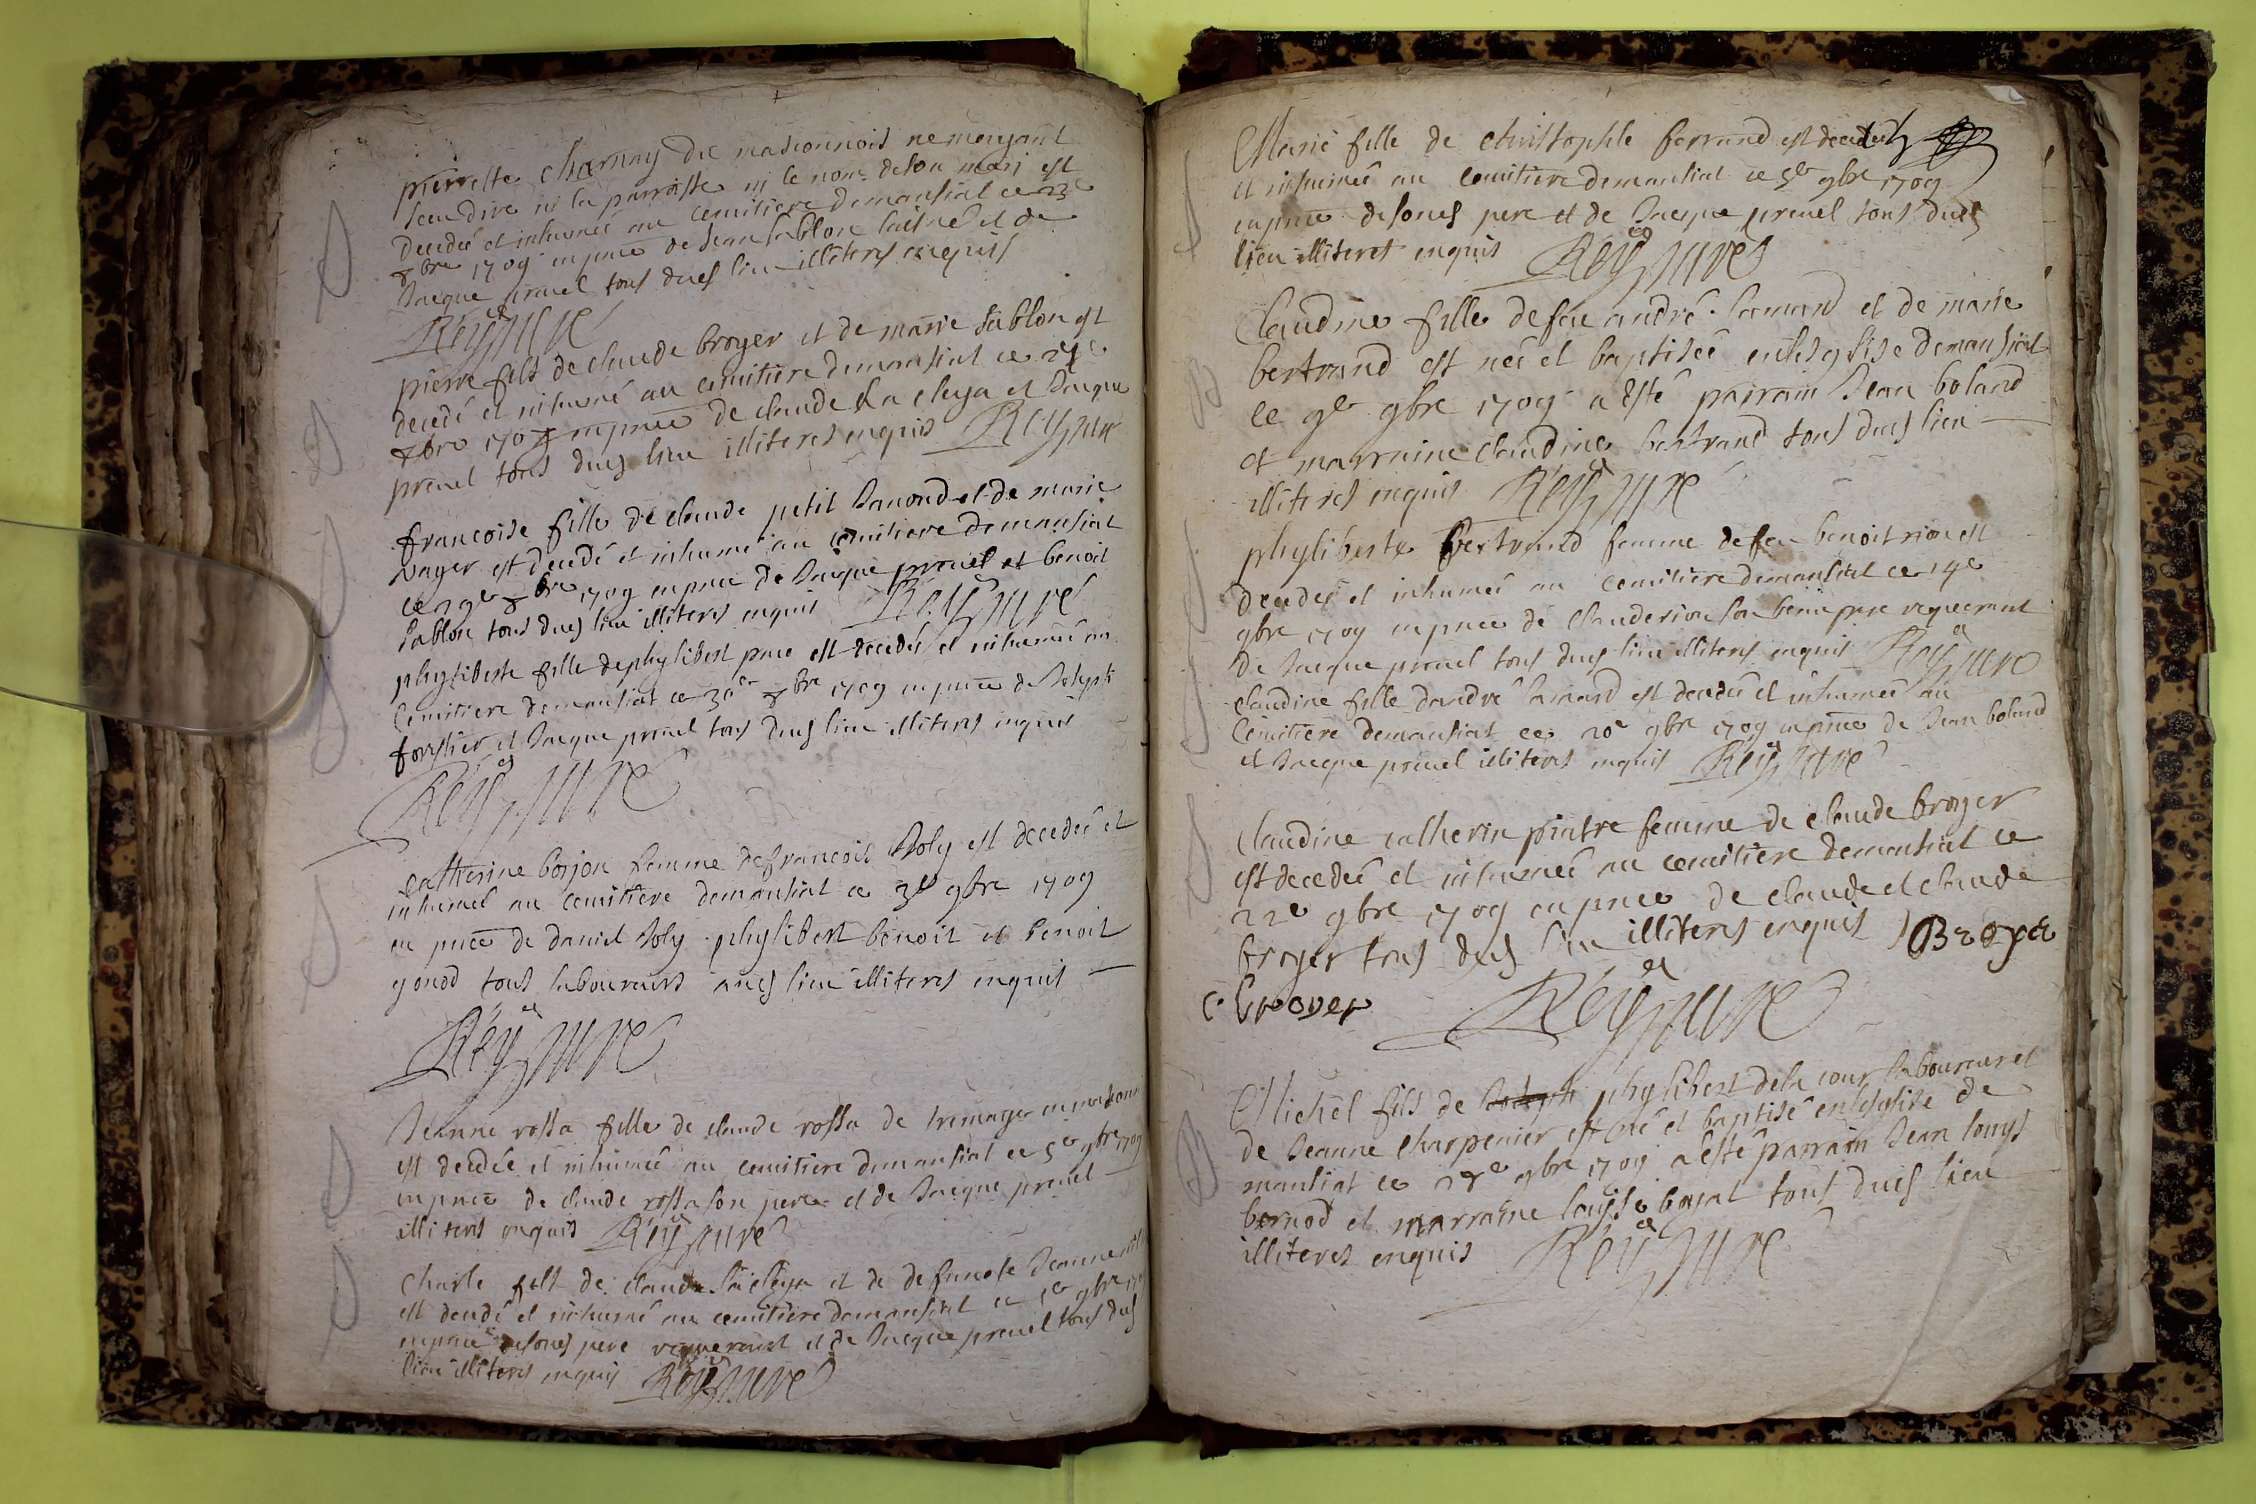 pierrette charnay du masconnois ne moyant
sceu dire ni la parroisse ni le nom de son mari est
decedeé et inhumeé au cemitiere demansiat ce 23e
8bre 1709 en pnce de Jean Sablon laisné et de
Jacque preuel tous dud lieu illiteres enquis
Réy curé
pierre fils de claude broyer et de marie Sablon est
decedé et inhumé au cemitiere demansiat ce
8bre 1709 en pnce de claude La cleya et Jacque
preuel tous dud lieu illiteres enquis Rey curé
francoise fille de claude petit Jamond et de marie
vuyer est decedé et inhumé au cemitiere demansiat
ce 29e 8bre 1709 en pnce de Jacque preuel et benoit
Sablon tous dud lieu illiteres enquis Réy curé
phyliberte fille de phylibert puce est decedeé et inhumeé au
Cemitiere demansiat ce 30e 8bre 1709 en pnce de Joseph
forestier et Jacque preuel tous dud lieu illiteres enquis
Réy curé
catherine borjon femme de francois Joly est decedeé et
inhumeé au cemitiere demansiat ce 3e 9bre 1709
en pnce de daniel Joly phylibert benoit et benoit
gonod tous laboureurs aud lieu illiteres enquis
Réy curé
Jeanne rossa fille de claude rossa de tremaye en
est decedeé et inhumeé au cemitiere demansiat ce 5e 9bre 1709
en pnce de claude rossa son pere et de Jacque preuel
illiteres enquis Réy curé
Charle fils de claude la cleya et de defuncte Jeanne
est decedé et inhumé au cemitiere demansiat ce 9bre
en pnce de soned pere requerant et de Jacque preuel tous dud
lieu illiteres enquis Réy curé
Marie fille de christophle ferrand est decedeé
et inhumeé au cemitiere demansiat ce 5e 9bre 1709
en pnce de soned pere et de Jacque preuel tous dud
lieu illiteres enquis Réy curé
Claudine fille de feu andré Jamand et de marie
bertrand est neé et baptiseé en lesglise demansiat
ce 9e 9bre 1709 a esté parrain Jean boland
et marraine claudine bertrand tous dud lieu
illiteres enquis Réy curé
phyliberte bertrand femme de feu benoit rion est
decedeé et inhumeé au cemitiere demansiat ce 14e
9bre 1709 en pnce de claude rion son beaupere requerant
de Jacque preuel tous dud lieu illiteres enquis Réy curé
claudine fille dandré Jamand est decedeé et inhumeé au
Cemitiere demansiat ce 20e 9bre 1709 en pnce de Jean boland
et Jacque preuel illiteres enquis Réy curé
Claudine catherin pintre femme de claude broyer
est decedeé et inhumeé au cemitiere demansiat ce
22e 9bre 1709 en pnce de claude et claude
broyer tous dud lieu illiteres enquis
C broyer Réy curé
Michel fils de Joseph phylibert dela cour laboureur et
de Jeanne Charpenier est né et baptisé en lesglise de
mansiat ce 9bre 1709 a esté parrain Jean louys
bernod et marraine louyse boyat tous dud lieu
illiteres enquis Réy curé